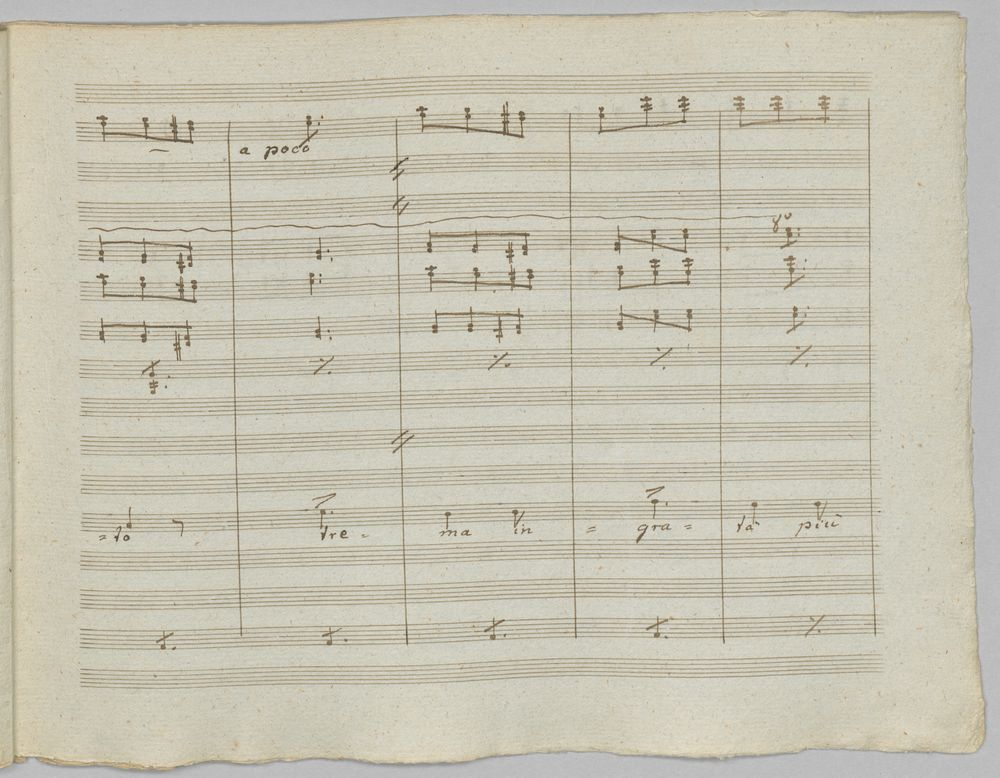 a poco
8º
=to tre- ma in = gra= ta più